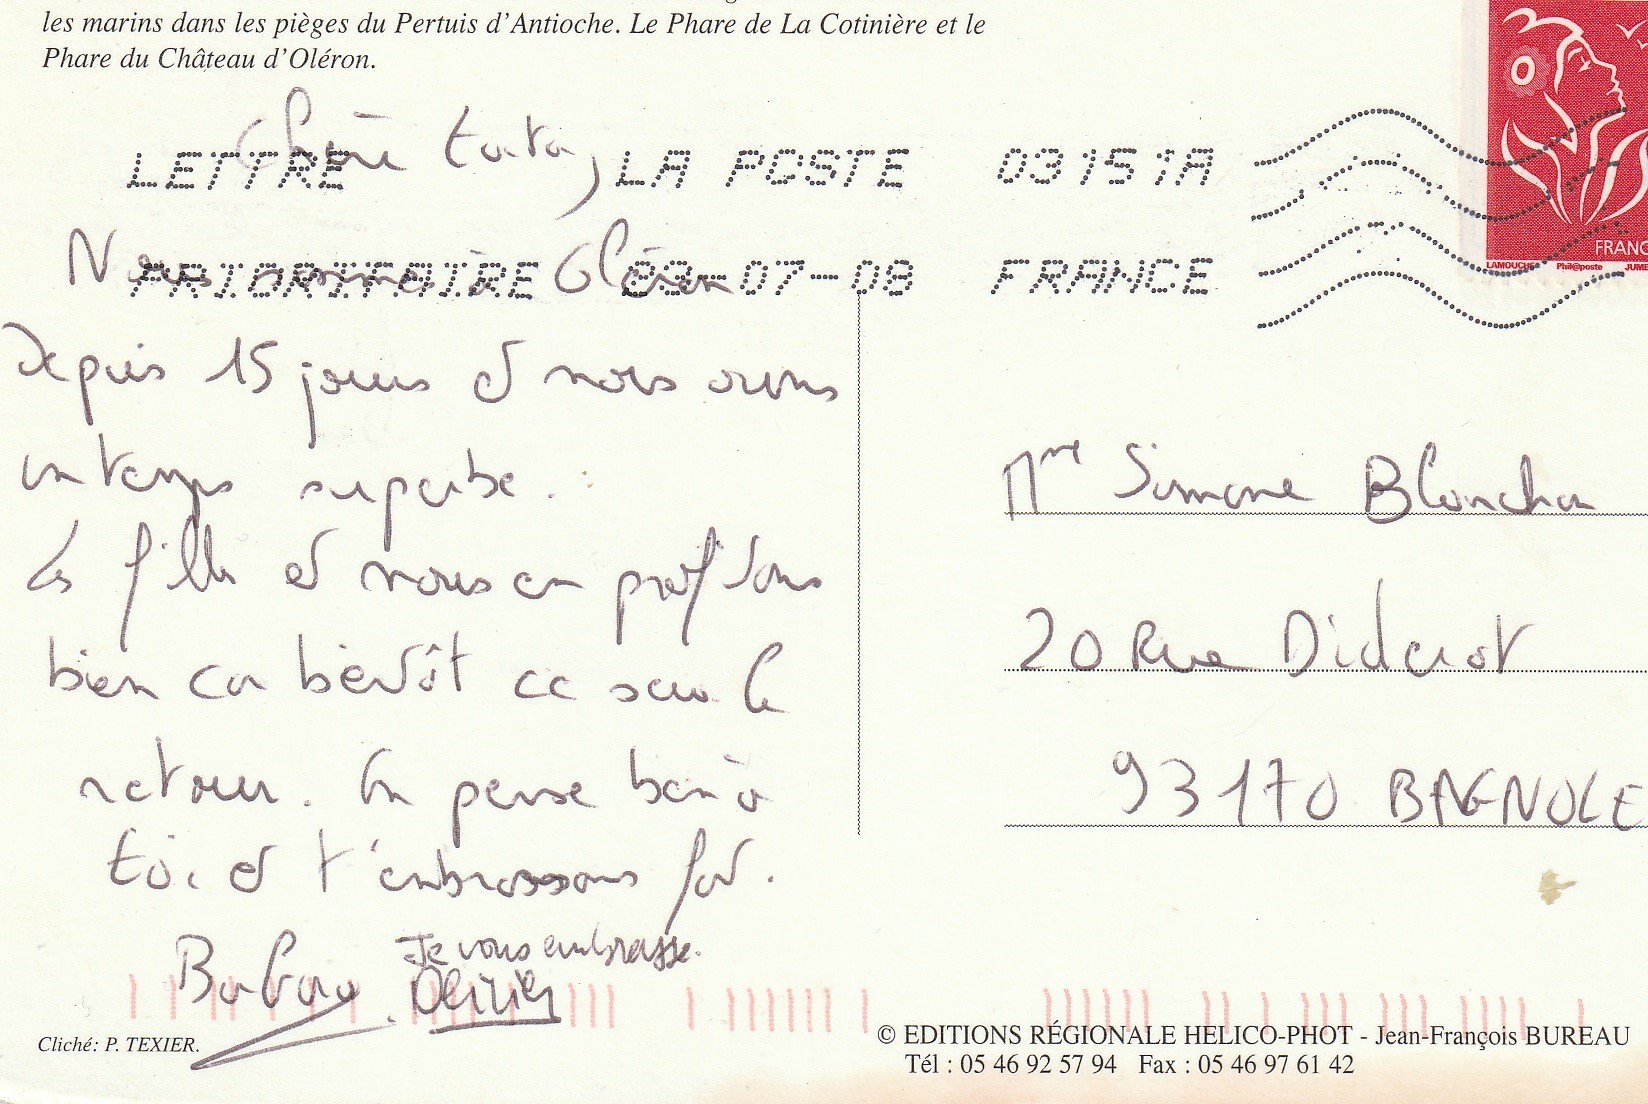 les marins dans les pièges du Pertuis d'Antioche. Le Phare de La Cotinière et le
Phare du Château d'Oléron.
LETTRE LA POSTE 03151A
PRIORITAIRE 07-08 FRANCE
FRANC
LAMOUCHE Phil@poste JUME
Chère tata,
Nous sommes à Oléron
Depuis 15 jours et nous avons
un temps superbe.
Les filles et nous en profitons
bien car bientôt ce sera le
retour. On pense bien à
toi et t'embrassons fort.
Barbara
Je vous embrasse.
Olivier
Mme Simone Blanchon
20 Rue Diderot
93170 BAGNOLE
Cliché: P. TEXIER.
© EDITIONS RÉGIONALE HELICO-PHOT - Jean-François BUREAU
Tél : 05 46 92 57 94 Fax : 05 46 97 61 42